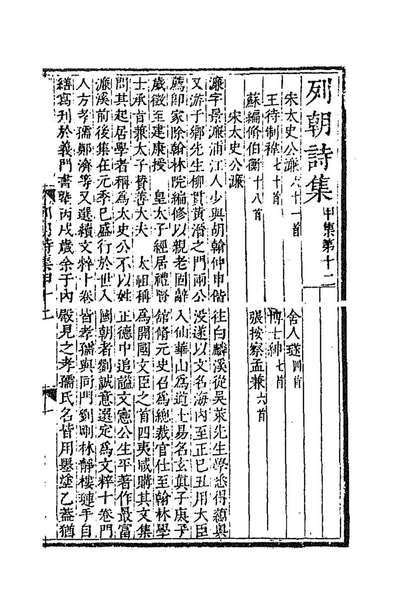 列朝詩集 甲集第十二
宋太史公濂六十一首　舍人璲四首
王待制禕七首　博士紳七首
蘇編脩伯衡十八首　張按察孟兼六首
宋太史公濂
濂字景濂浦江人少與胡翰仲申偕往白麟溪從吳萊先生學悉得蘊奧
又游于鄉先生柳貫黃溍之門兩公沒遂以文名海內至正己丑用大臣
薦即家除翰林院編修以親老固辭入仙華山為道士易名玄真子庚子
歲徵至建康授　皇太子經居禮賢舘脩元史召為總裁官仕至翰林學
士承旨兼太子贊善大夫　太祖稱為開國文臣之首四夷咸購其文集
問其起居學者稱為太史公不以姓正德中追謚文憲公生平著作最富
濂溪前後集在元季已盛行於世入國朝者劉誠意選定為文粹十卷門
人方孝孺鄭濟等又選續文粹十卷皆孝孺與同門劉剛林靜樓璉手自
繕寫刊於義門書塾丙戌歲余于內殿見之孝孺氏名皆用墨塗乙蓋猶
列朝詩集甲十二　一